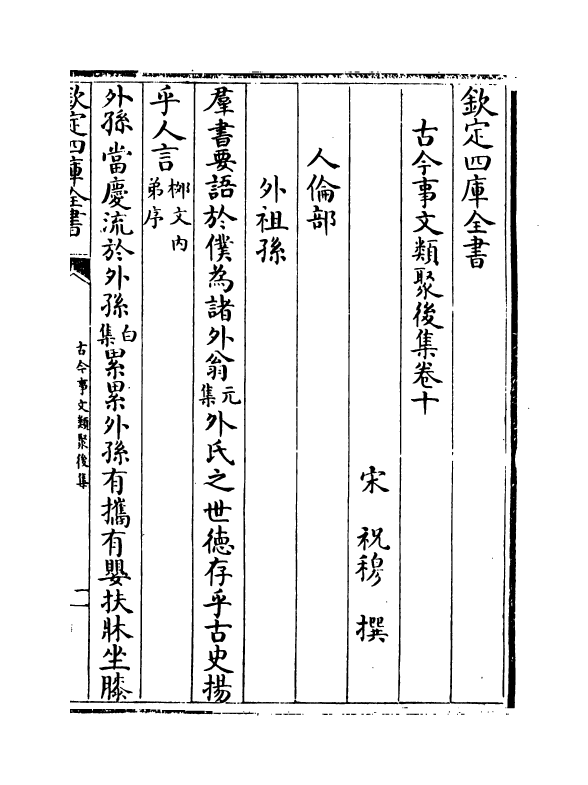 欽定四庫全書
古今事文類聚後集卷十
宋 祝穆 撰
人倫部
外祖孫
羣書要語於僕為諸外翁元集外氏之世徳存乎古史揚
乎人言栁文内弟序
外孫當慶流於外孫白集累累外孫有攜有嬰扶牀坐膝
欽定四庫全書
古今事文類聚後集
一